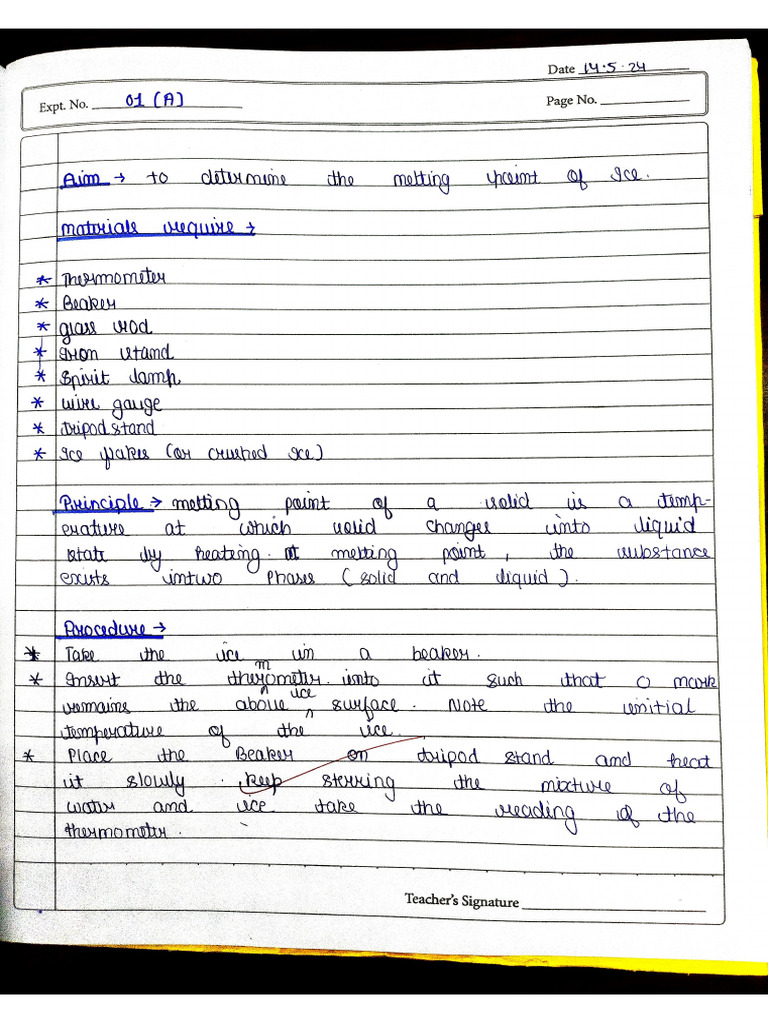 Date 14.5.24
Expt. No. 01 (A)
Page No.
Aim → to determine the melting point of Ice.
Materials require →
* Thermometer
* Beaker
* glass rod
* Iron stand
* Spirit lamp
* wire gauge
* tripod stand
* Ice flakes (or crushed Ice)
Principle → melting point of a solid is a temp-
erature at which solid changes into liquid
state by heating. at melting point, the substance
exists intwo Phases (solid and liquid).
Procedure →
* Take the ice in a beaker.
* Insert the thermometer into it such that 0 mark
remains the above ice surface. Note the initial
temperature of the ice.
* Place the Beaker on tripod stand and heat
it slowly. keep sterring the mixture of
water and ice take the reading of the
thermometer.
Teacher's Signature